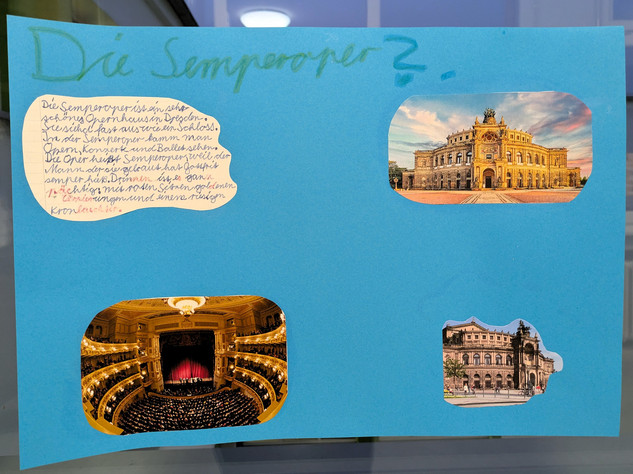 Die Semperoper?.
Die Semperoper ist ein sehr
schönes Opernhaus in Dresden.
Sie sieht fast aus wie ein Schloss.
In der Semperoper kann man
Opern, Konzerte und Ballet sehen.
Die Oper heißt Semperoper, weil der
Mann der sie gebaut hat Gottfried
semper hieß. Drinnen ist es ganz
mit roten Sitzen, goldenen
und einem riesigen
Kronleuchter.